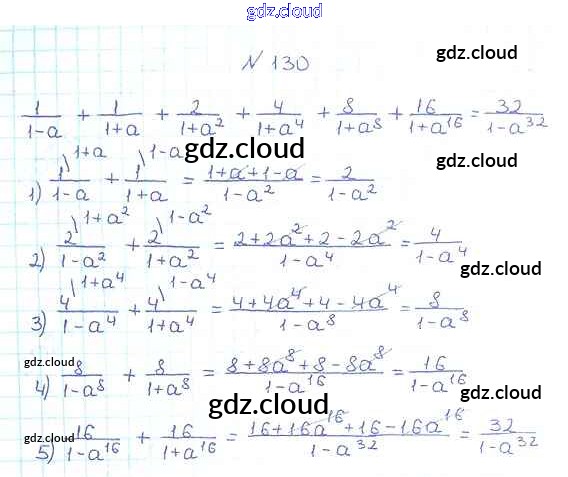 gdz.cloud
gdz.cloud
N 130
1/(1-a) + 1/(1+a) + 2/(1+a²) + 4/(1+a⁴) + 8/(1+a⁸) + 16/(1+a¹⁶) = 32/(1-a³²)
gdz.cloud
1) 1\1+a/(1-a) + 1\1-a/(1+a) = (1+a+1-a)/(1-a²) = 2/(1-a²)
2) 2\1+a²/(1-a²) + 2\1-a²/(1+a²) = (2+2a²+2-2a²)/(1-a⁴) = 4/(1-a⁴)
gdz.cloud
gdz.cloud
3) 4\1+a⁴/(1-a⁴) + 4\1-a⁴/(1+a⁴) = (4+4a⁴+4-4a⁴)/(1-a⁸) = 8/(1-a⁸)
gdz.cloud
4) 8/(1-a⁸) + 8/(1+a⁸) = (8+8a⁸+8-8a⁸)/(1-a¹⁶) = 16/(1-a¹⁶)
gdz.cloud
gdz.cloud
gdz.cloud
5) 16/(1-a¹⁶) + 16/(1+a¹⁶) = (16+16a¹⁶+16-16a¹⁶)/(1-a³²) = 32/(1-a³²)
gdz.cloud